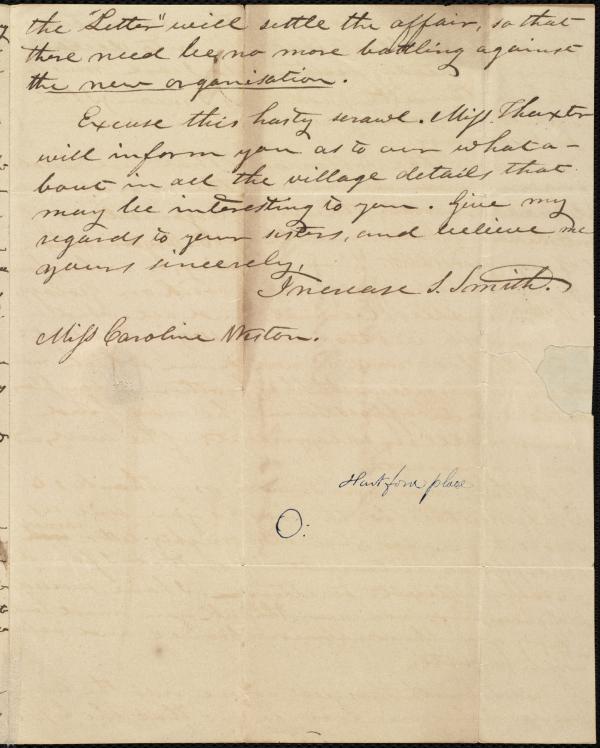 the "Letter" will settle the affair, so that
there need be no more battling against
the new organisation.
Excuse this hasty scrawl. Miss Thaxter
will inform you as to our what a-
bout in all the village details that
may be interesting to you. Give my
regards to your sisters, and believe me
yours sincerely,
Increase S. Smith.
Miss Caroline Weston.
place
O: